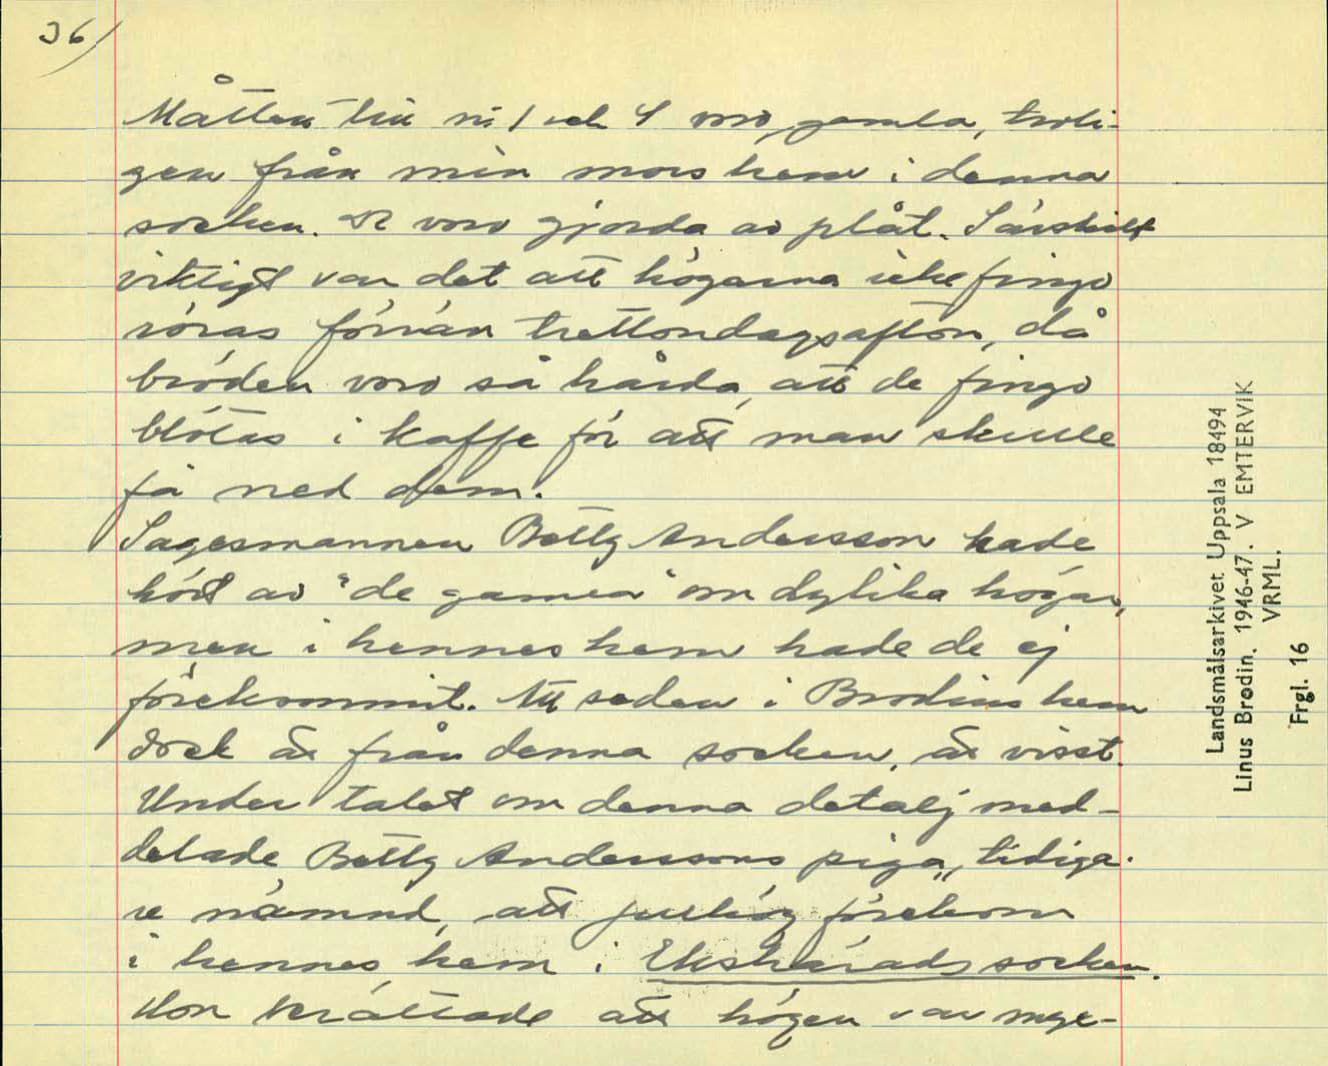 36/
Måtten till nr 1 och 4 voro gamla, troli-
gen från min mors hem i denna
socken. De voro gjorda av plåt. Särskilt
viktigt var det att högarna icke fingo
röras förrän trettondagsafton, då
bröden voro så hårda, att de fingo
blötas i kaffe för att man skulle
få ned dem.
Sagesmannen Betty Andersson hade
hört av "de gamla" om dylika högar,
men i hennes hem hade de ej
förekommit. Att seden i Brodins hem
dock är från denna socken, är visst.
Under talet om denna detalj med-
delade Betty Anderssons piga, tidiga-
re nämnd, att julhög förekom
i hennes hem i Ekshärads socken.
Hon berättade att högen var myc-
Landsmålsarkivet Uppsala 18494
Linus Brodin. 1946-47. V EMTERVIK
VRML.
Frgl. 16